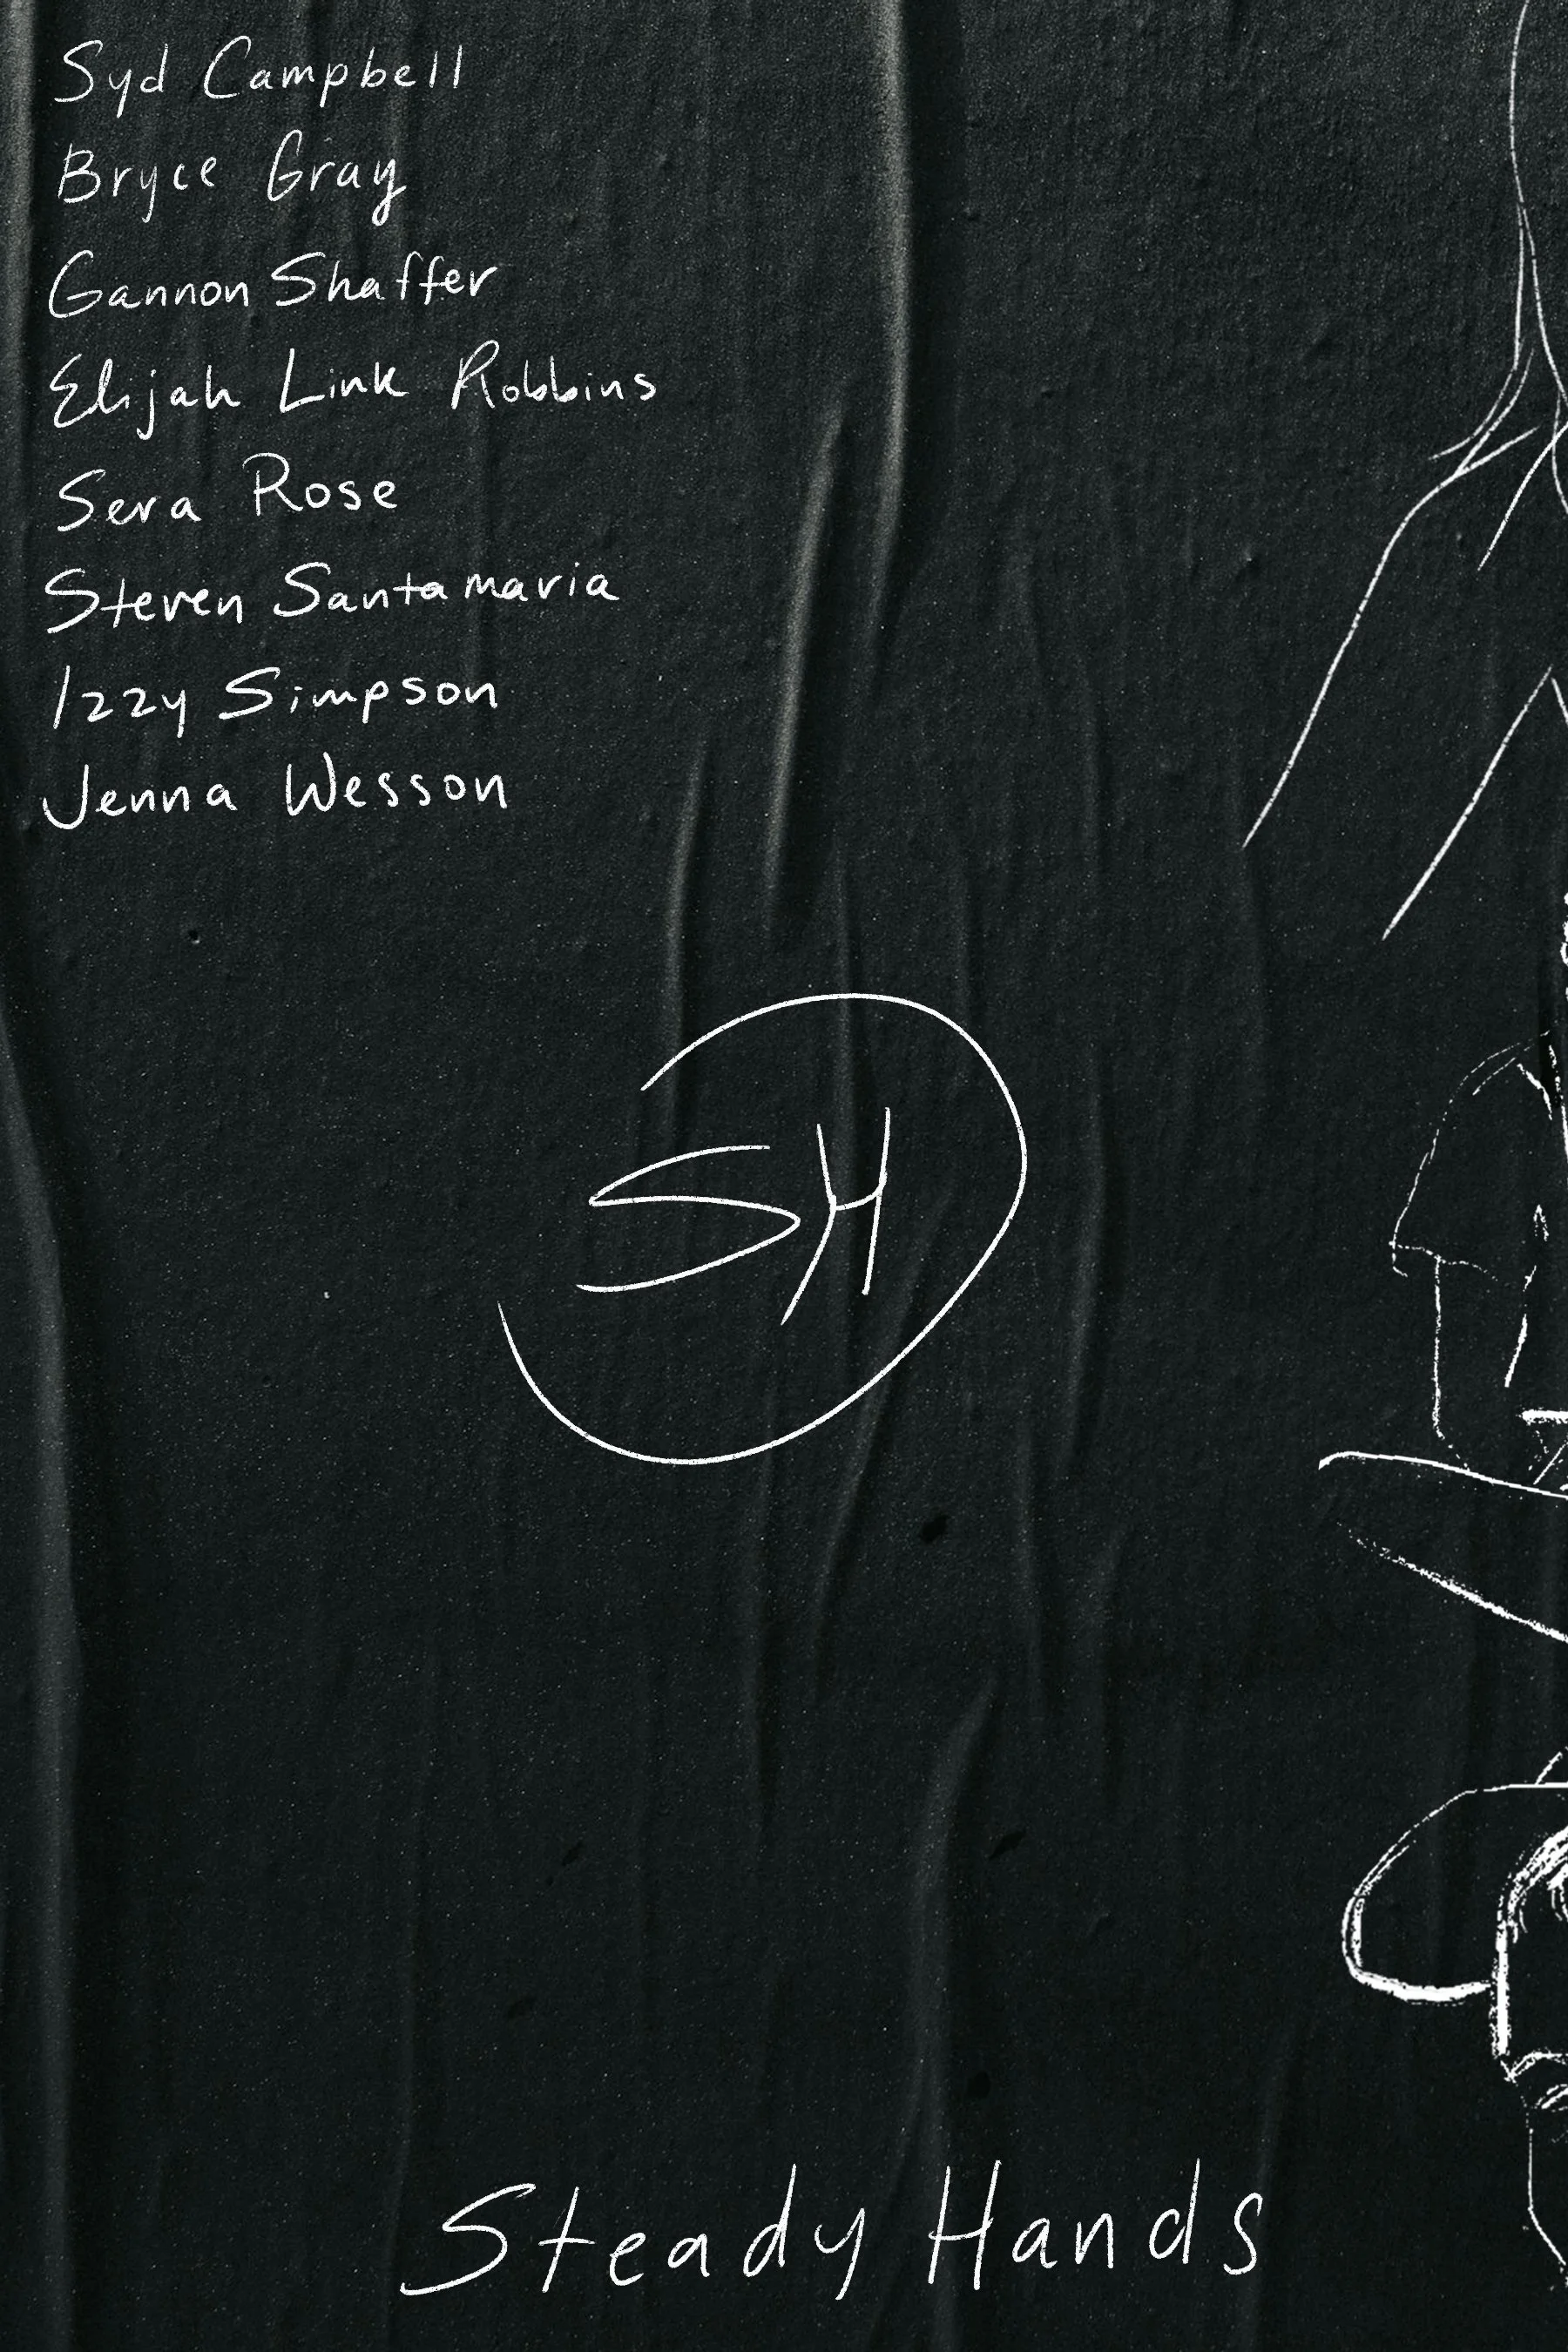 Syd Campbell
Bryce Gray
Gannon Shaffer
Elijah Link Robbins
Sera Rose
Steven Santamaria
Izzy Simpson
Jenna Wesson
SH
Steady Hands